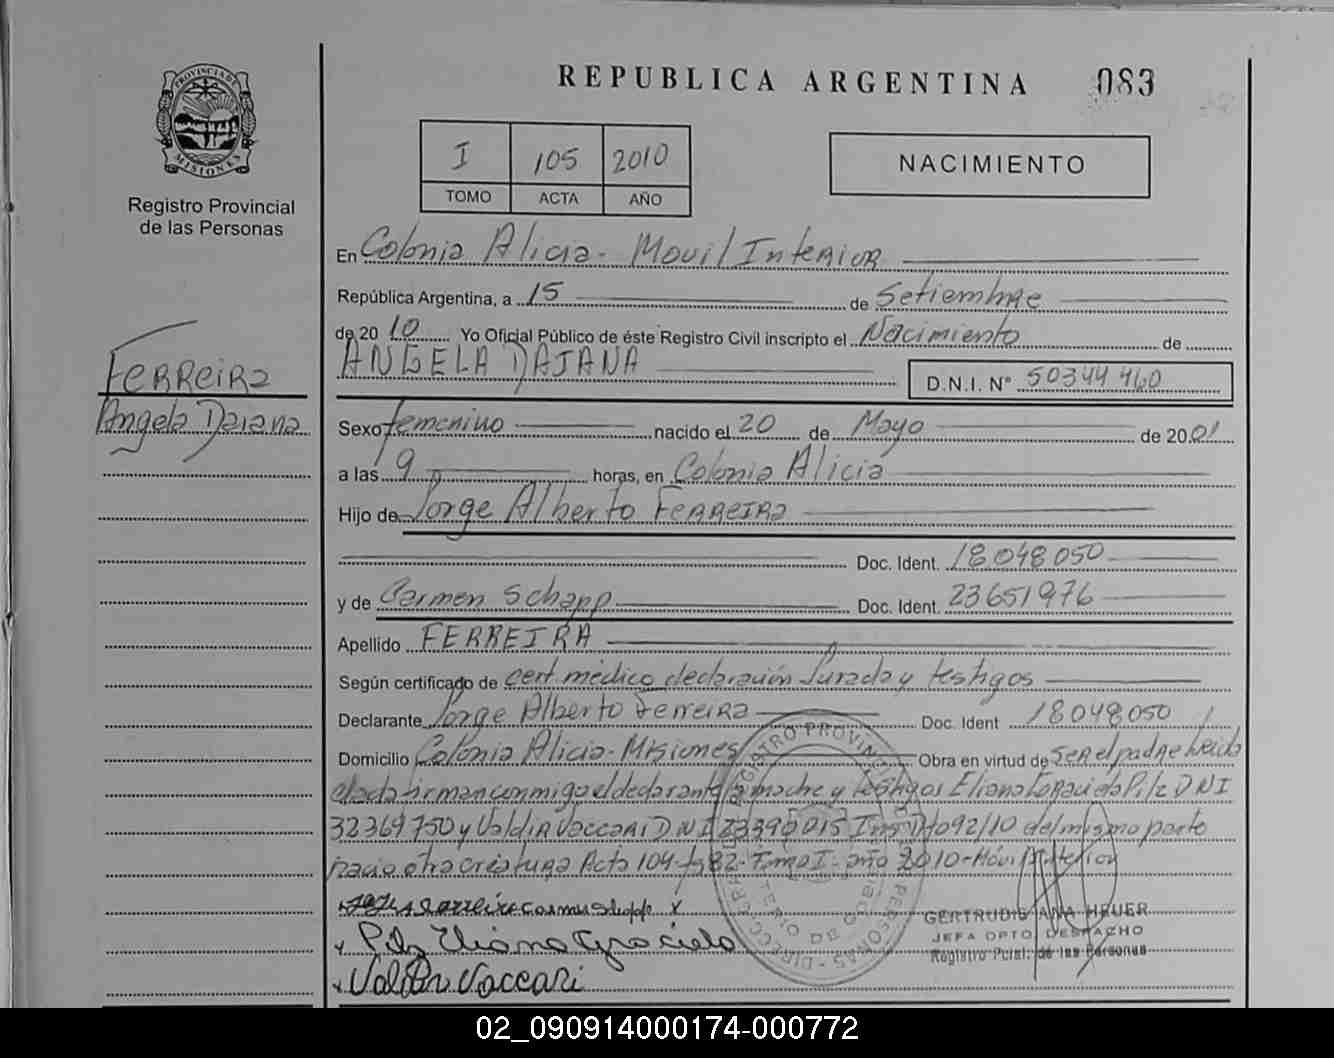 REPUBLICA ARGENTINA 083
PROVINCIA DE MISIONES
Registro Provincial
de las Personas
I 105 2010
TOMO ACTA AÑO
NACIMIENTO
En Colonia Alicia - Movil Interior
República Argentina, a 15 de Setiembre
de 2010 Yo Oficial Público de éste Registro Civil inscripto el Nacimiento de
ANGELA DAIANA
D.N.I. N° 50344460
Ferreira
Angela Daiana
Sexo femenino nacido el 20 de Mayo de 2001
a las 9 horas, en Colonia Alicia
Hijo de Jorge Alberto Ferreira
Doc. Ident. 18.048.050
y de Carmen Schapp Doc. Ident. 23651976
Apellido FERREIRA
Según certificado de cert médico declaración Jurada y testigos
Declarante Jorge Alberto Ferreira Doc. Ident 18048050
Domicilio Colonia Alicia - Misiones Obra en virtud de Ser el padre Leida
el acta firman conmigo el declarante la madre y testigos Eliana Graciela Pilz DNI
32369750 y Valdir Vaccari DNI 23390015 092/10 del mismo parto
nacio otra creatura Acta 104 fs 82 - Tomo I - año 2010 - Móvil Interior
x
x Pilz Eliana Graciela
x Valdir Vaccari
GERTRUDIS ANA HEUER
JEFA DPTO. DESPACHO
Registro Pcial. de las Personas
02_090914000174-000772